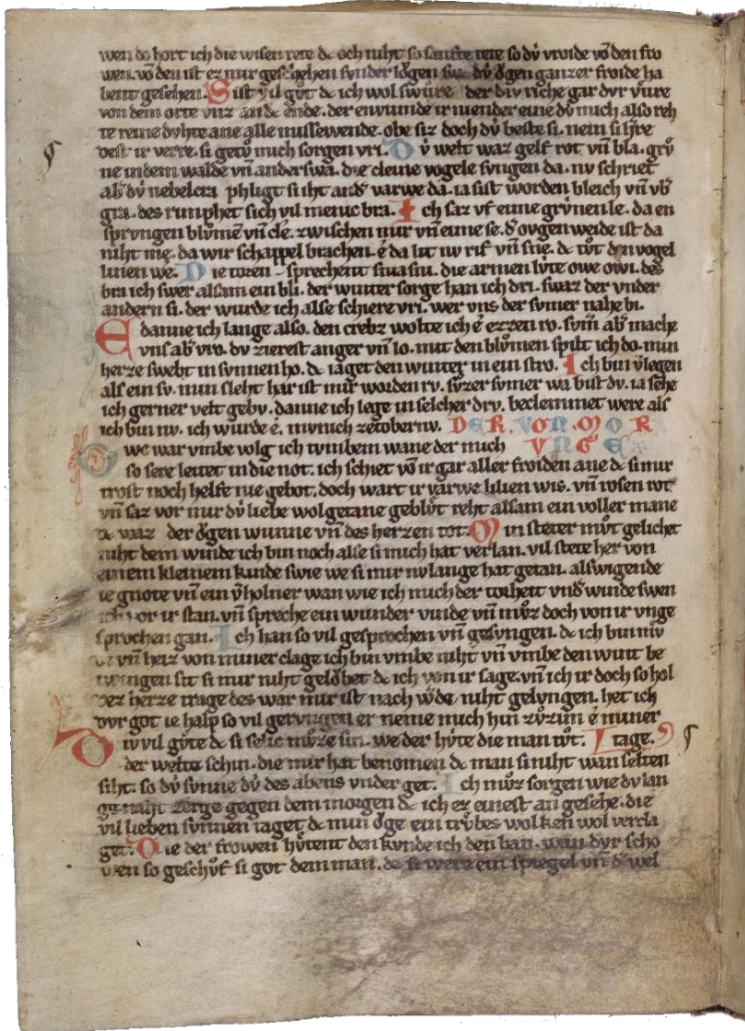 wen do hort ich die wisen rete dc och niht so sanfte tete so dv́ vroide vō den fro
wen. vō den ist ez mir geschehen svnder lǒgen swc dv́ ǒgen ganzer froide ha
bent gesehen. Si ist v̓il gv̊t dc ich wol swv̂re der div riche gar dvr vûre
von dem orte vnz an dc ende. der envunde ir niender eine dv́ mich also reh
te reine dvhte ane alle missewende. obe siz doch dv́ beste si. nein si ist
best ir verre. si getv̊ mich sorgen vri. Dv́ welt waz gelf rot vn̄ bla. grv̊
ne in dem walde vn̄ anderswa. die cleine vogele svngen da. nv schriet
ab̓ dv́ nebelcra phligt si iht and̓ varwe da. ia si ist worden bleich vn̄ vb̓
gra. des rimphet sich vil menic bra. Ich saz vf eime grv̊nen le. da en
sprvngen blv̊mē vn̄ cle. zwischen mir vn̄ eime se. d̓ ovgen weide ist da
niht me. da wir schappel brachen. é da lit nv rif vn̄ sne. dc tv̊t den vogel
linen we. Die toren sprechent snia sni. die armen lv́te owe owi. des
bin ich swer alsam ein bli. der winter sorge han ich dri. swaz der vnder
andern si. der wurde ich alse schiere vri. wer vns der svmer nahe bi.
E danne ich lange also. den crebz wolte ich é ezzen ro. svm̄ ab̓ mache
vns ab̓ vro. dv zierest anger vn̄ lo. mit den blv̊men spilt ich do. min
herze swebt in svnnen ho. dc iaget den winter in ein stro. Ich bin v̓legen
als ein sv. min sleht har ist mir worden rv. sv̊zer svmer wa bist dv. ia sehe
ich gerner velt gebv. danne ich lege in selcher drv. beclemmet were als
ich bin nv. ich wurde é. mvnich ze toberlv. DER. VON. MOR
Owe war vmbe volg ich tvmbem wane der mich VNGEN
so sere leitet in die not. ich schiet vō ir gar aller froiden ane dc si mir
trost noch helfe nie gebot. doch wart ir varwe lilien wis. vn̄ rosen rot
vn̄ saz vor mir dv́ liebe wolgetane geblv̊t reht alsam ein voller mane
dc waz der ǒgen wunne vn̄ des herzen tot. Min steter mv̊t gelichet
niht dem winde ich bin noch alse si mich hat verlan. vil stete her von
einem kleinem kinde swie we si mir nv lange hat getan. alswigende
ie gnote vn̄ ein v̓holner wan wie ich mich der torheit vnd̓ winde swen
ich vor ir stan. vn̄ spreche ein wunder vinde vn̄ mv̊z doch von ir vnge
sprochen gan. Ich han so vil gesprochen vn̄ gesvngen. dc ich bin mv̊
de vn̄ heis von miner clage ich bin vmbe niht vn̄ vmbe den wint be
twngen sit si mir niht gelǒbet dc ich von ir sage. vn̄ ich ir doch so hol
dez herze trage des war mir ist nach w̓de. niht gelvngen. het ich
dvr got ie halp so vil gervngen er neme mich hin zv̊zim é miner
Div vil gv̊te dc si selic mv̊ze sin. we der hv̊te die man tv̊t. tage.
der welte schin. die mir hat benomen dc man si niht wan selten
siht. so dv́ svnne dv́ des abens vnder get. Ich mv̊z sorgen wie dv́ lan
ge naht zerge gegen dem morgen dc ich ez einest an gesehe. die
vil lieben svnnen taget dc min ǒge ein trv̊bes wolken wol verkla
get. Die der frowen hv̊tent den kvnde ich den ban. wan dvr scho
wen so geschv̊f si got dem man. dc si were ein spiegel vn̄ d̓ wel